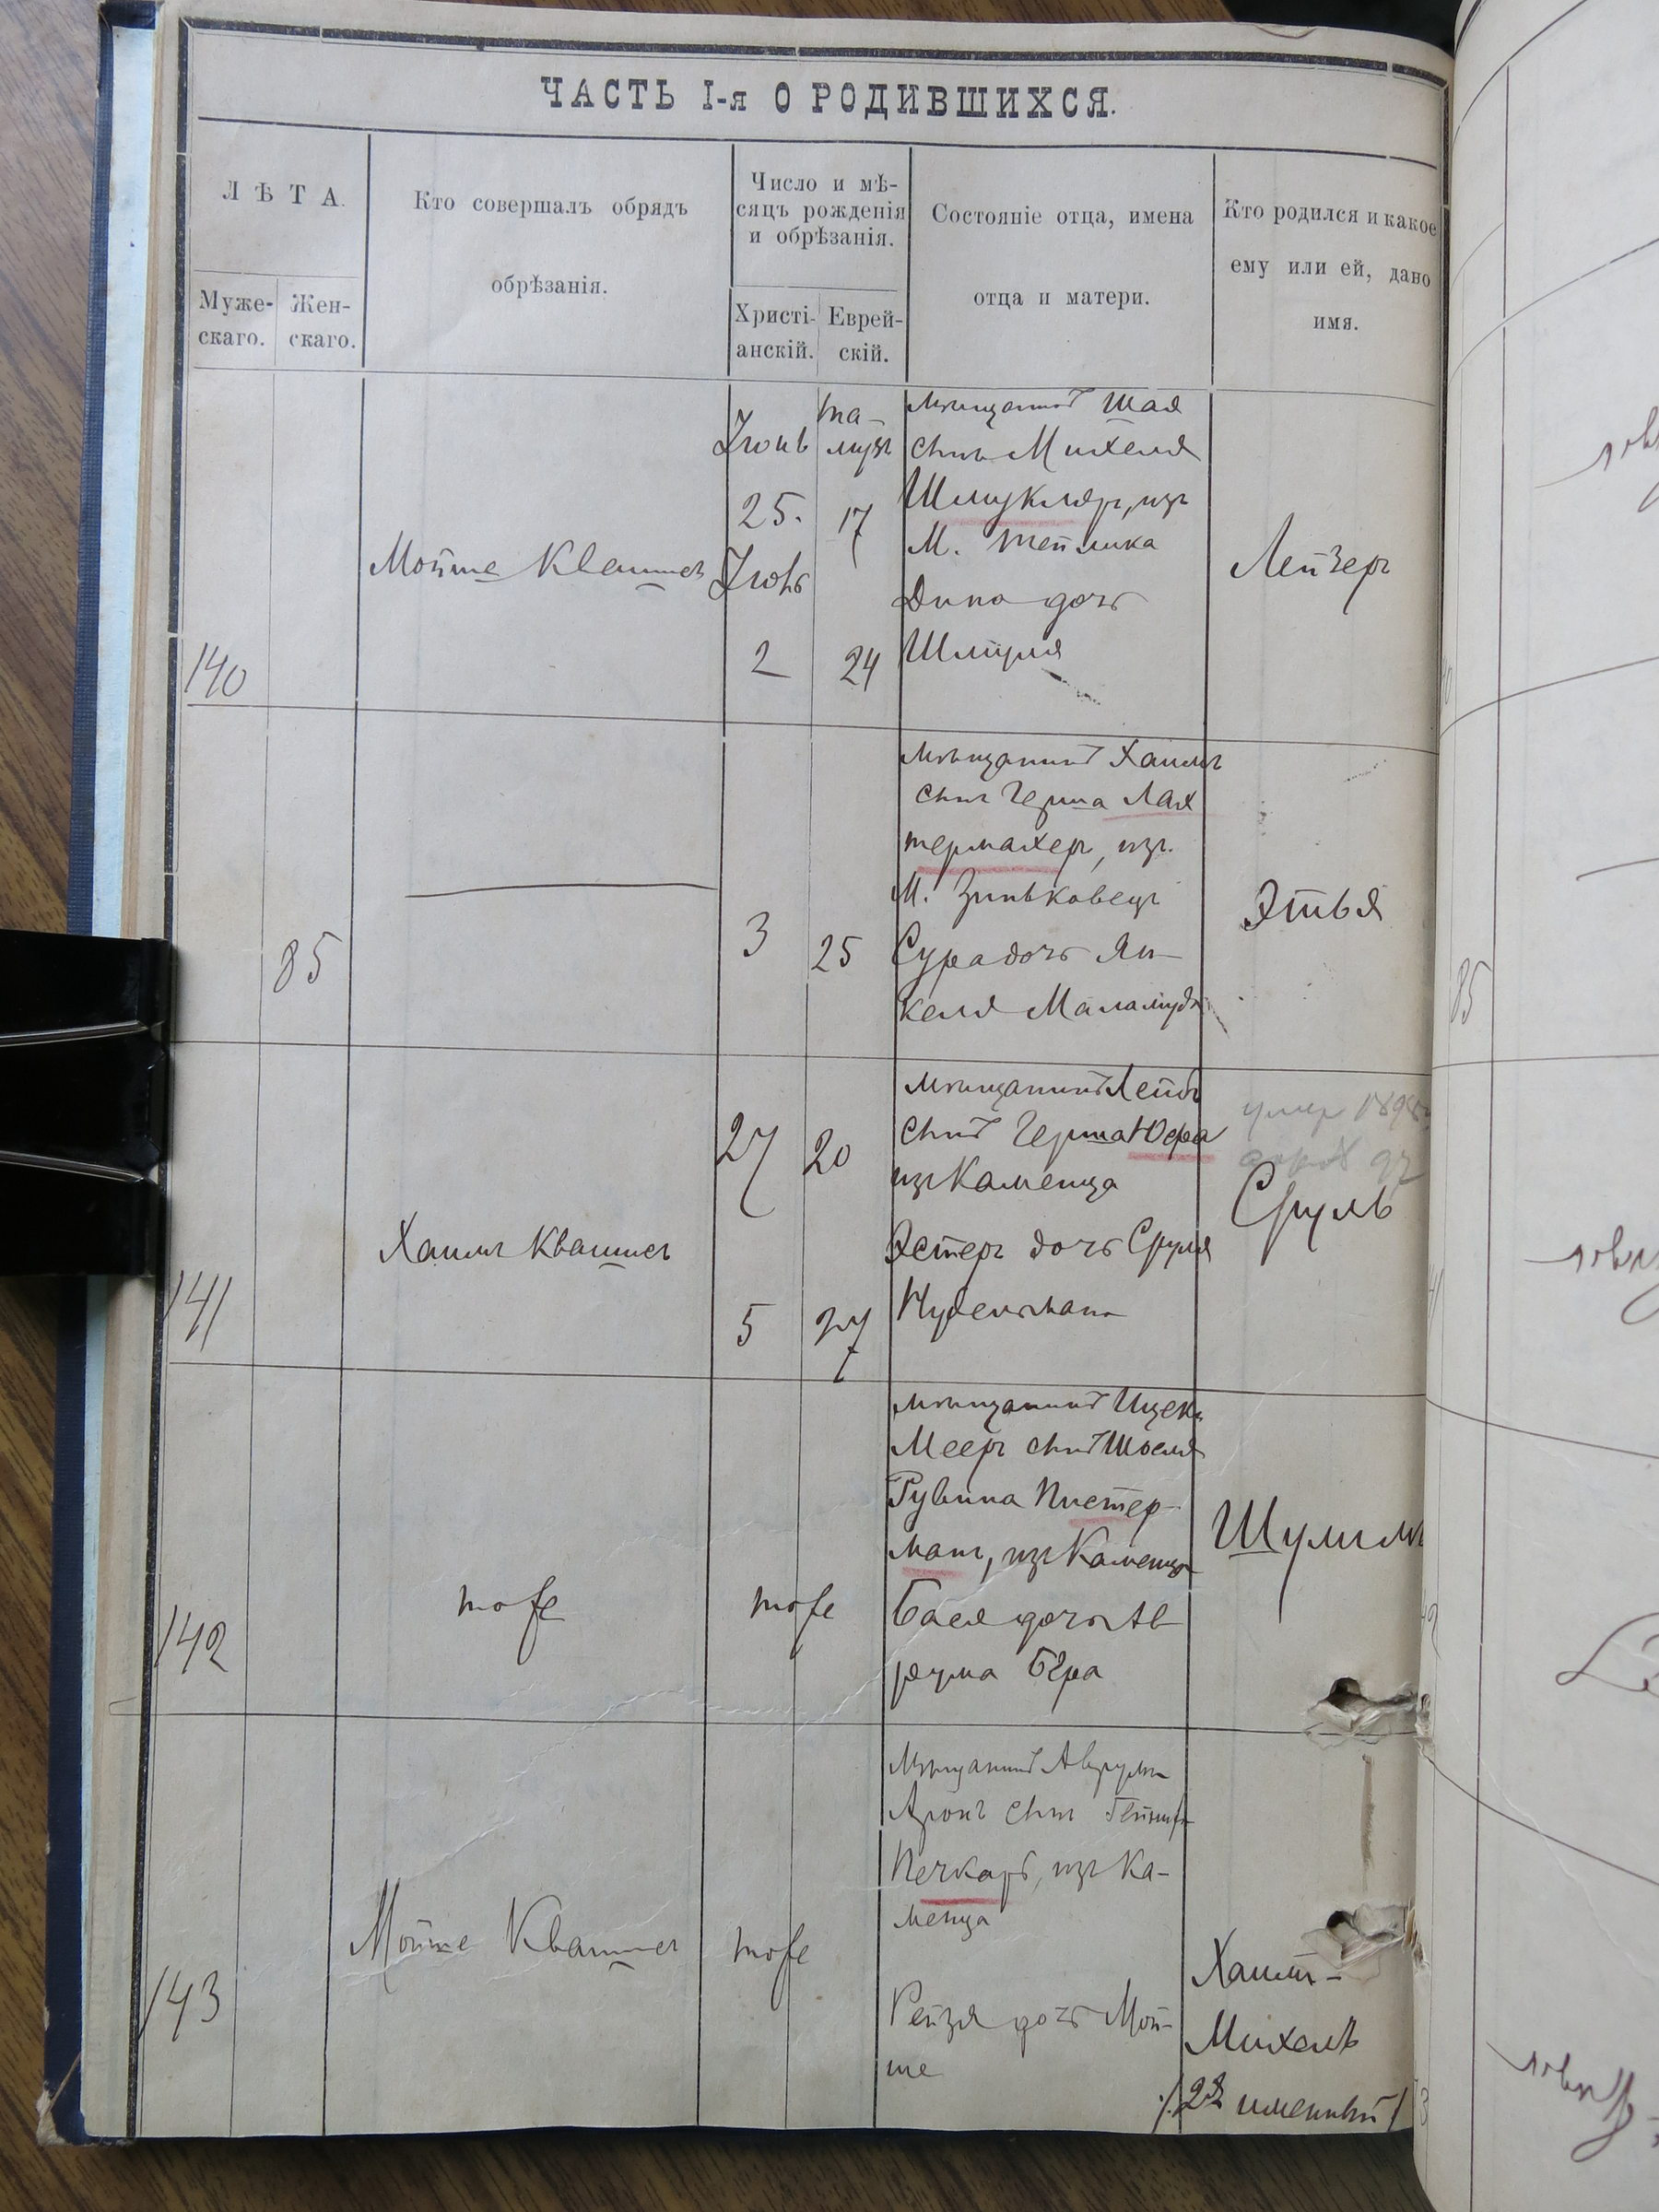 ЧАСТЬ I-я О РОДИВШИХСЯ.
ЛѢТА.
Муже-
скаго.
Жен-
скаго.
Кто совершалъ обрядъ
обрѣзанія.
Число и мѣ-
сяцъ рожденія
и обрѣзанія.
Христі-
анскій.
Еврей-
скій.
Состояніе отца, имена
отца и матери.
Кто родился и какое
ему или ей, дано
имя.
140
Мойше Квашисъ
Іюнь
25.
Іюль
2
та-
музъ
17
24
мѣщанинъ Шая
сынъ Михеля
Шмуклеръ, изъ
М. Теплика
Дина дочь
Шмуля
Лейзеръ
85
3
25
мѣщанинъ Хаимъ
сынъ Герша Лах
термахеръ, изъ
М. Зиньковецъ
Сура дочь Ян-
келя Маламудъ
Этья
141
Хаимъ Квашисъ
27
5
20
27
мѣщанинъ Лейбъ
сынъ Герша Юфа
изъ Каменца
Эстеръ дочь Сруля
Нудельмана
умеръ
Сруль
142
тоже
тоже
мѣщанинъ Ицекъ
Мееръ сынъ Шоеля
Рувина Пистер-
манъ, изъ Каменца
Бася дочь Ав
рума Бера
Шулимъ
143
Мойше Квашисъ
тоже
мѣщанинъ Аврумъ
Аронъ сынъ
Печкарь, изъ Ка-
менца
Рейзя дочь Мой-
ше
Хаимъ-
Михель
/2х именный/